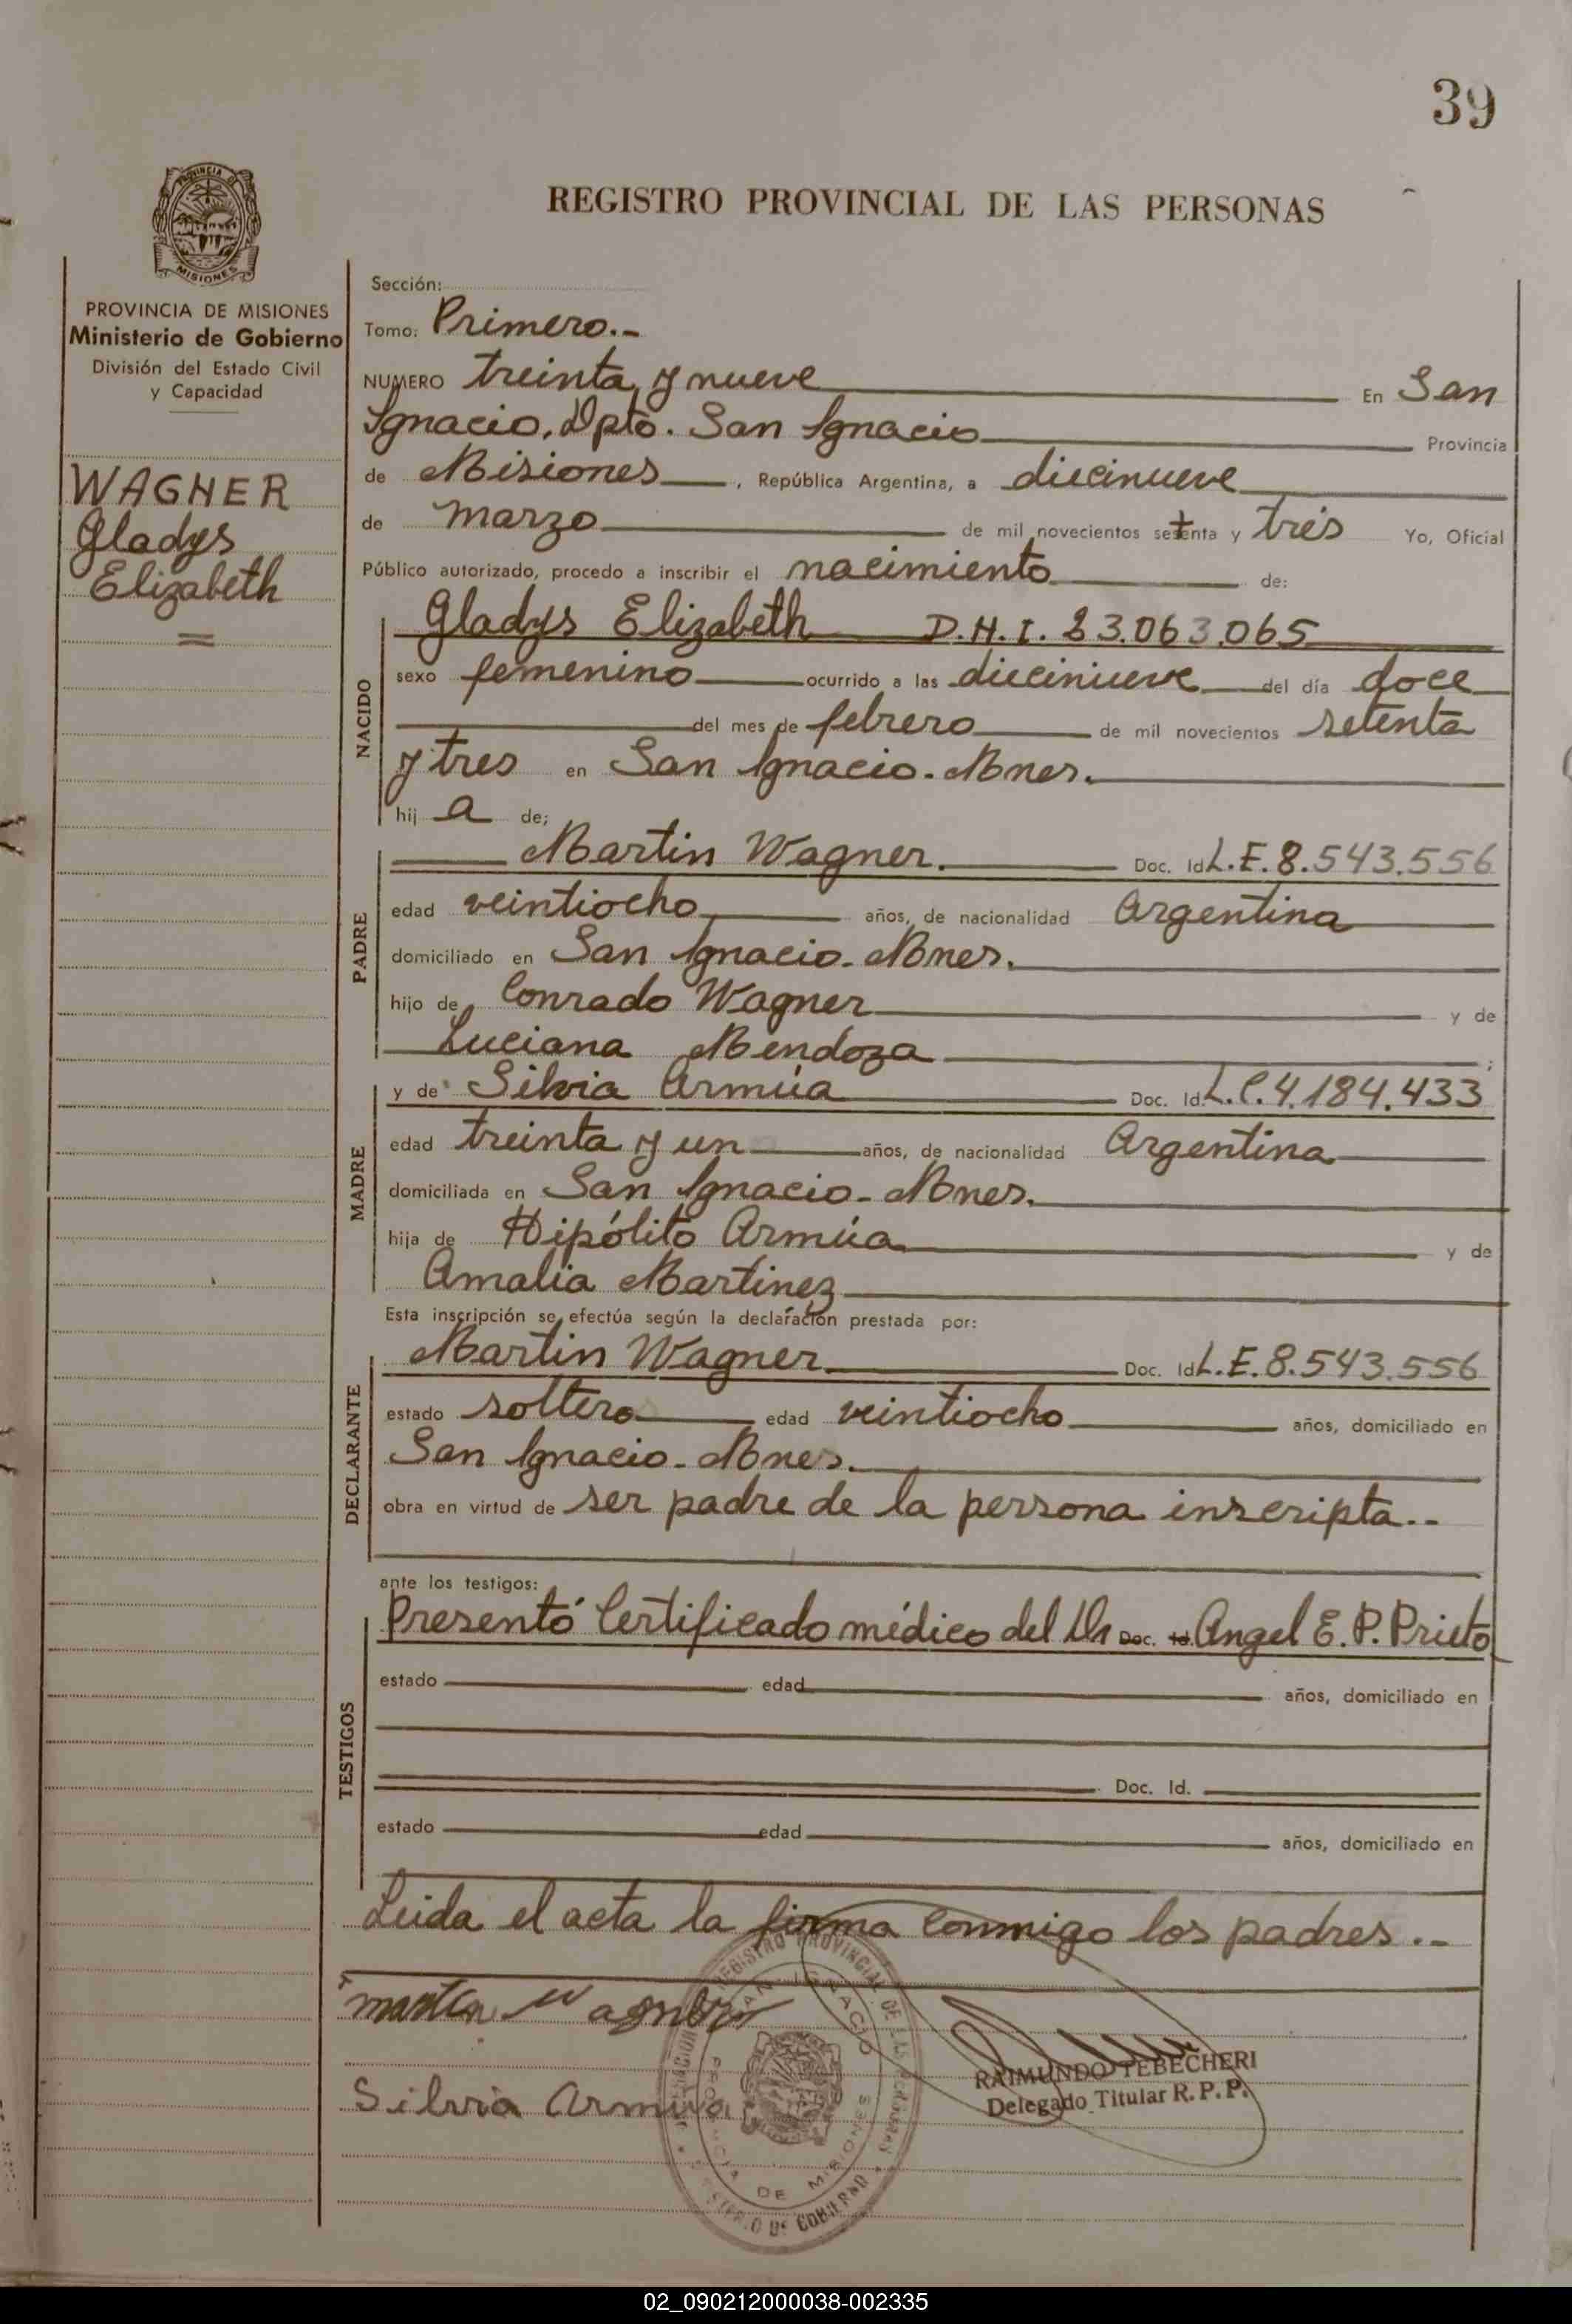 39
PROVINCIA DE
MISIONES
REGISTRO PROVINCIAL DE LAS PERSONAS
PROVINCIA DE MISIONES
Ministerio de Gobierno
División del Estado Civil
y Capacidad
WAGNER
Gladys
Elizabeth
Sección:
Tomo: Primero.-
NUMERO treinta y nueve En San
Ignacio, Dpto. San Ignacio Provincia
de Misiones, República Argentina, a diecinueve
de marzo de mil novecientos setenta y tres Yo, Oficial
Público autorizado, procedo a inscribir el nacimiento de:
NACIDO
Gladys Elizabeth D.N.I. 23.063.065
sexo femenino ocurrido a las diecinueve del día doce
del mes de febrero de mil novecientos setenta
y tres en San Ignacio-Mnes.
hij a de;
PADRE
Martin Wagner. Doc. Id L.E. 8.543.556
edad veintiocho años, de nacionalidad Argentina
domiciliado en San Ignacio-Mnes.
hijo de Conrado Wagner y de
Luciana Mendoza ;
MADRE
y de Silvia Armúa Doc. Id. L.C. 4.184.433
edad treinta y un años, de nacionalidad Argentina
domiciliada en San Ignacio-Mnes.
hija de Hipólito Armúa y de
Amalia Martinez
Esta inscripción se efectúa según la declaración prestada por:
DECLARANTE
Martin Wagner Doc. Id L.E. 8.543.556
estado soltero edad veintiocho años, domiciliado en
San Ignacio-Mnes.
obra en virtud de ser padre de la persona inscripta.-
ante los testigos:
TESTIGOS
Presentó Certificado médico del Dr Doc. Id. Angel E. P. Prieto
estado edad años, domiciliado en
Doc. Id.
estado edad años, domiciliado en
Leida el acta la firma conmigo los padres.-
martin Wagner
Silvia Armúa
REGISTRO PROVINCIAL DE LAS PERSONAS
SAN IGNACIO
PROVINCIA DE MISIONES
RAIMUNDO TEBECHERI
Delegado Titular R. P. P.
02_090212000038-002335